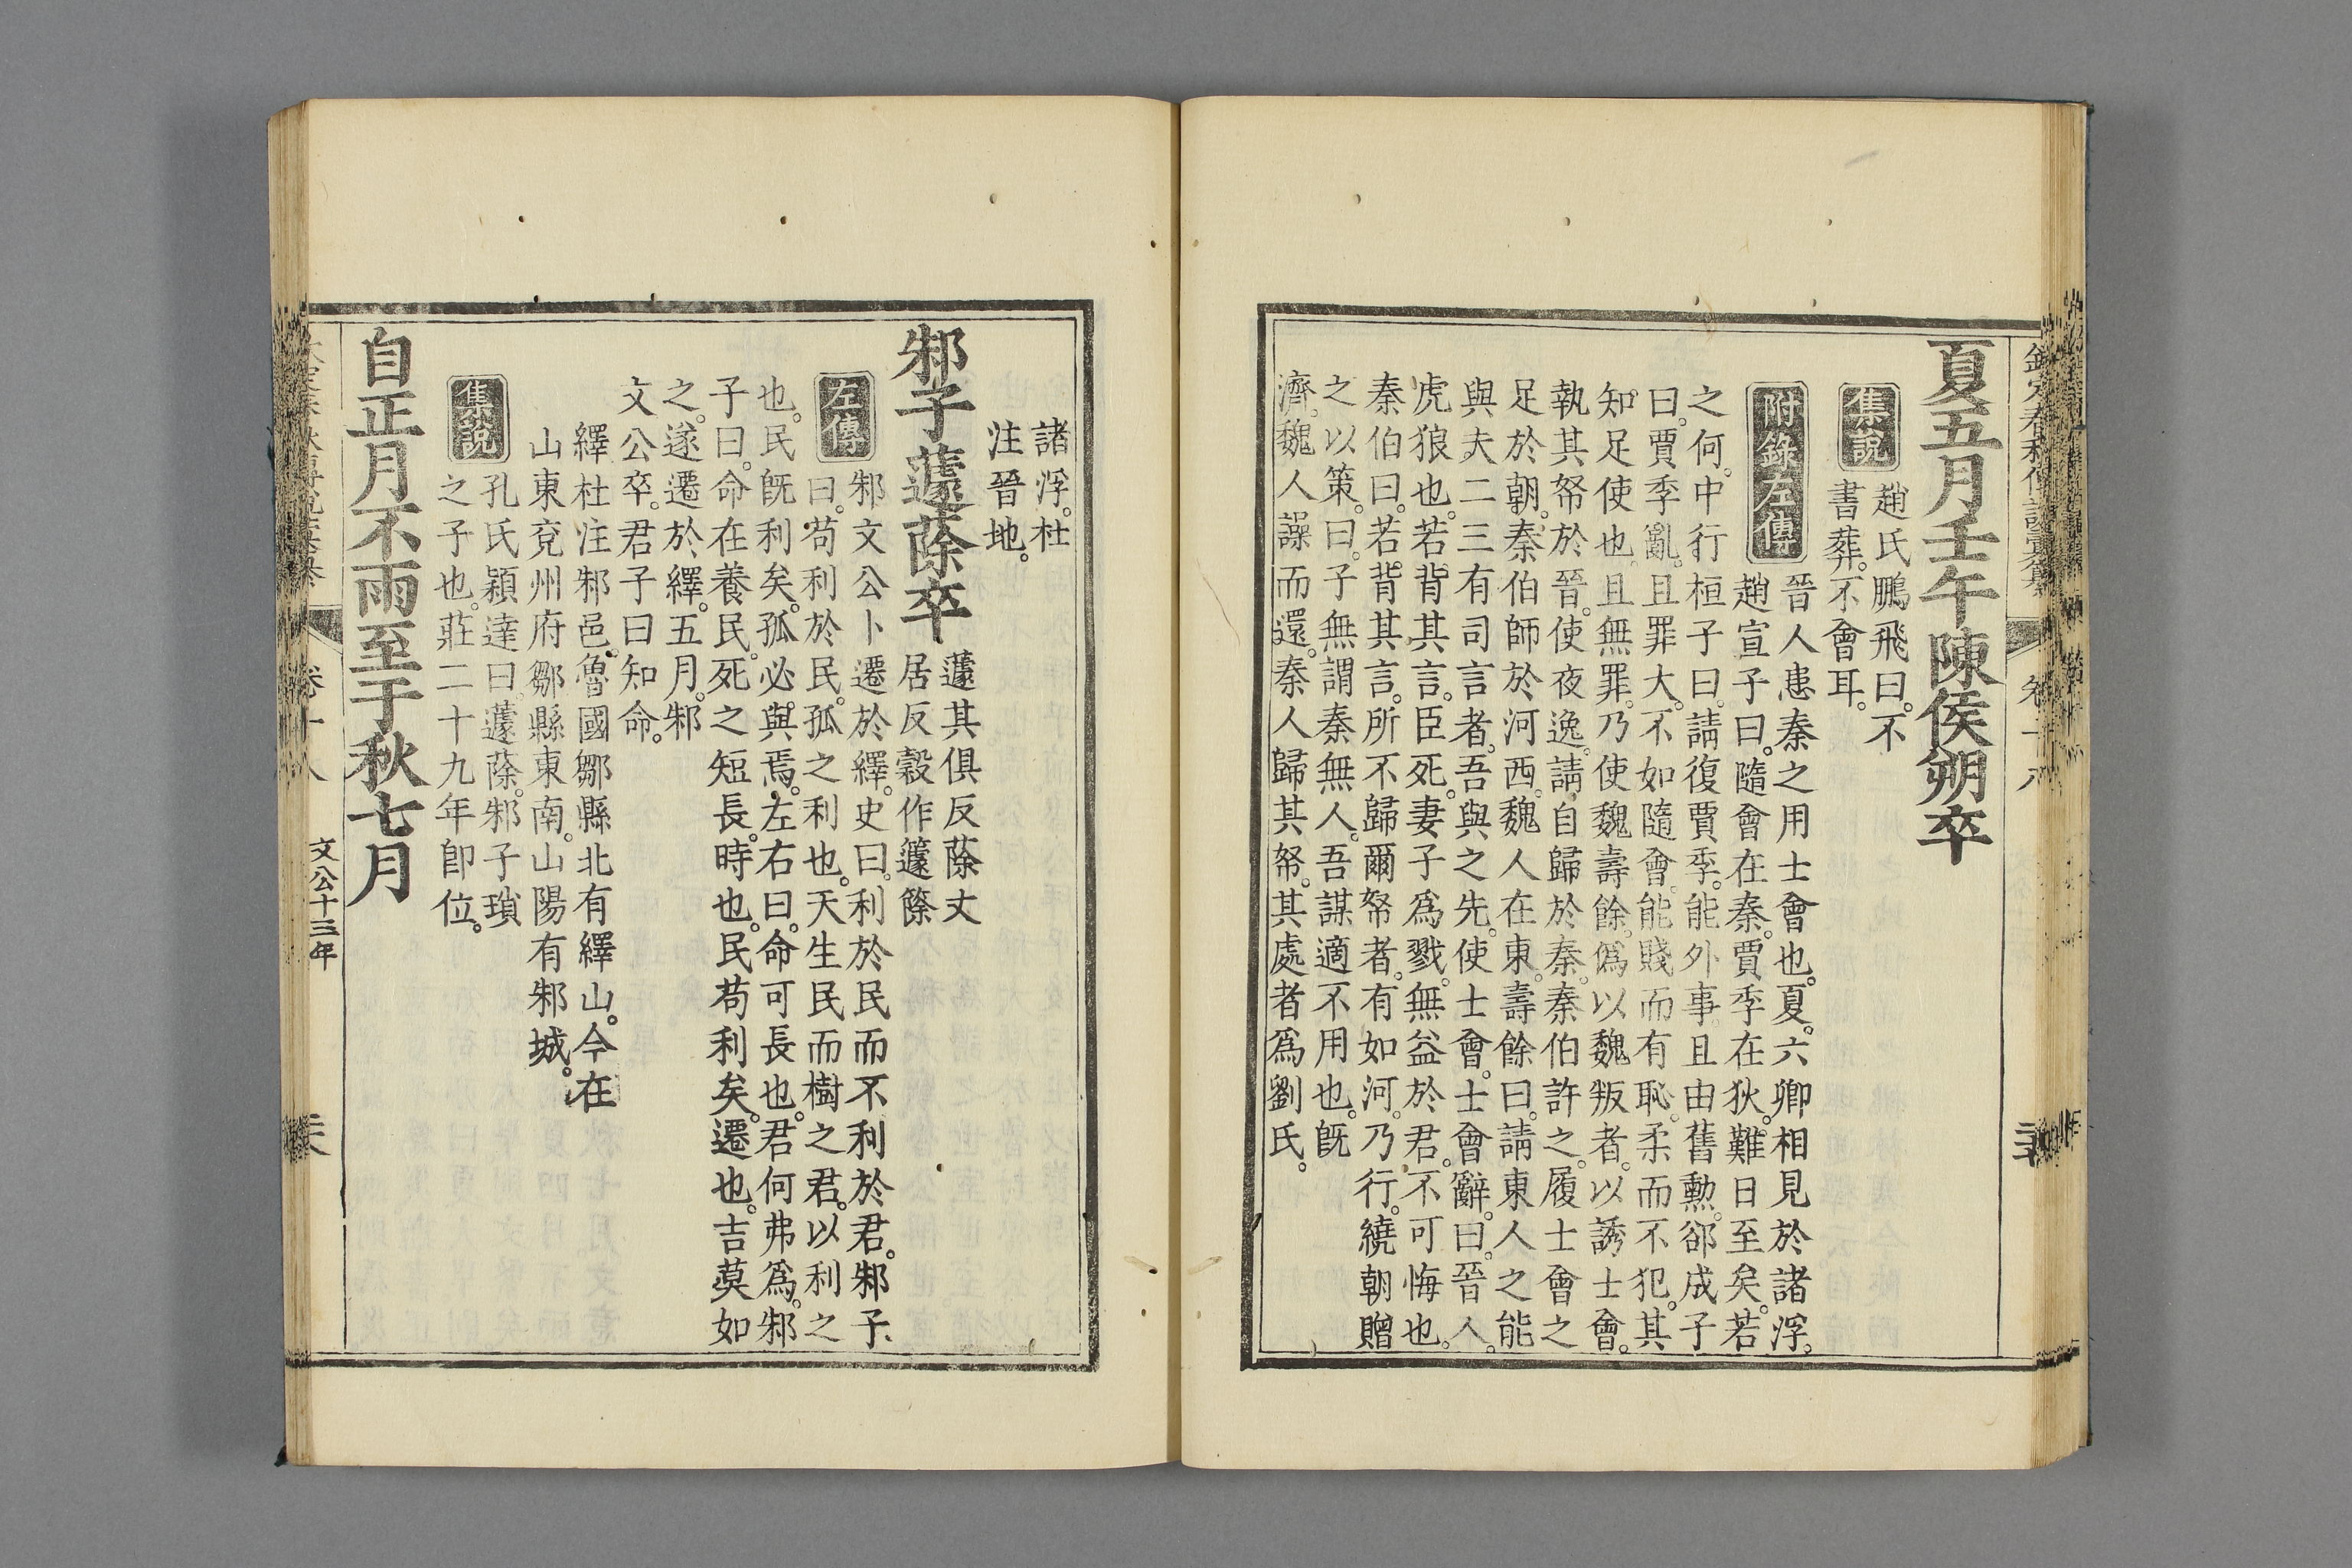 夏五月壬午陳侯朔卒
集說
趙氏鵬飛曰。不
書葬。不會耳。
附錄左傳
晉人患秦之用士會也。夏。六卿相見於諸浮。
趙宣子曰。隨會在秦。賈季在狄。難日至矣。若
之何。中行桓子曰。請復賈季。能外事。且由舊勳。郤成子
曰。賈季亂。且罪大。不如隨會。能賤而有恥。柔而不犯。其
知足使也。且無罪。乃使魏壽餘。偽以魏叛者。以誘士會。
執其帑於晉。使夜逸。請自歸於秦。秦伯許之。履士會之
足於朝。秦伯師於河西。魏人在東。壽餘曰。請東人之能
與夫二三有司言者。吾與之先。使士會。士會辭。曰。晉人。
虎狼也。若背其言。臣死。妻子爲戮。無益於君。不可悔也。
秦伯曰。若背其言。所不歸爾帑者。有如河。乃行。繞朝贈
之以策。曰。子無謂秦無人。吾謀適不用也。既
濟。魏人譟而還。秦人歸其帑。其處者爲劉氏。
諸浮。杜
注晉地。
邾子蘧蒢卒
蘧其俱反蒢丈
居反穀作籧篨
左傳
邾文公卜遷於繹。史曰。利於民而不利於君。邾子
曰。苟利於民。孤之利也。天生民而樹之君。以利之
也。民既利矣。孤必與焉。左右曰。命可長也。君何弗爲。邾
子曰。命在養民。死之短長。時也。民苟利矣。遷也。吉莫如
之。遂遷於繹。五月。邾
文公卒。君子曰知命。
繹杜注邾邑。魯國鄒縣北有繹山。今在
山東兗州府鄒縣東南。山陽有邾城。
集說
孔氏穎達曰。蘧蒢。邾子瑣
之子也。莊二十九年卽位。
自正月不雨至于秋七月
卷十八
文公十三年